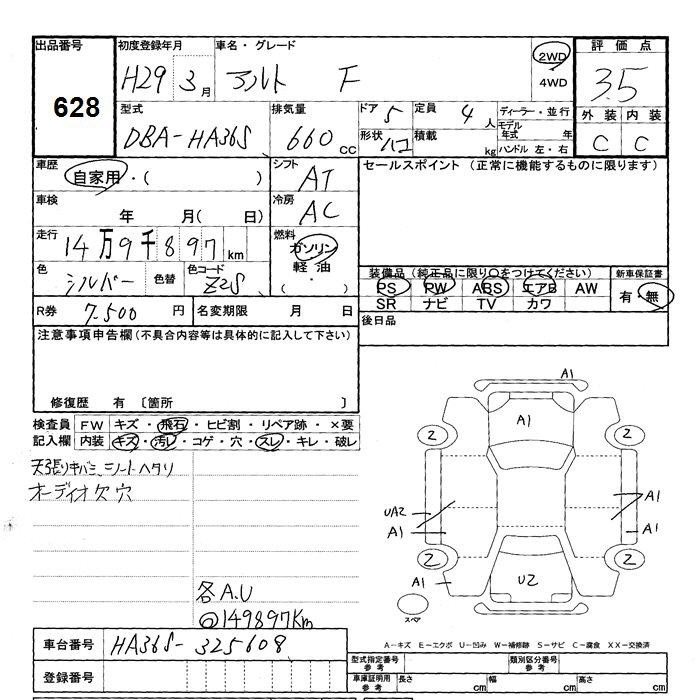 出品番号 初度登録年月 車名・グレード 2WD 評価点
628 H29 3月 アルト F 4WD 3.5
型式 排気量 ドア 5 定員 4人 ディーラー・並行 外装 内装
DBA-HA36S 660cc 形状 ハコ 積載 kg モデル年式 年 C C
ハンドル 左・右
車歴 自家用・( ) シフト AT セールスポイント (正常に機能するものに限ります)
車検 年 月( 日) 冷房 AC
走行 14万9千897km 燃料 ガソリン
軽油
( )
色 シルバー 色替 色コード Z2S 装備品(純正品に限り○をつけてください) 新車保証書
PS PW ABS エアB AW 有・無
SR ナビ TV カワ
R券 7,500円 名変期限 月 日 後日品
注意事項申告欄(不具合内容等は具体的に記入して下さい)
修復歴 有 〔箇所 〕
検査員 FW キズ・飛石・ヒビ割・リペア跡・×要
記入欄 内装 キズ・汚レ・コゲ・穴・スレ・キレ・破レ
天張りキバミ、シートヘタリ
オーディオ欠穴
各A.U
@149897Km
A1
A1
2 2
UA2 A1
A1 A1
2 2
A1 U2
スペア
A-キズ E-エクボ U-凹み W-補修跡 S-サビ C-腐食 XX-交換済
車台番号 HA36S-325608
登録番号
型式指定番号 参考 類別区分番号 参考
車庫証明用 参考 長さ cm 幅 cm 高さ cm